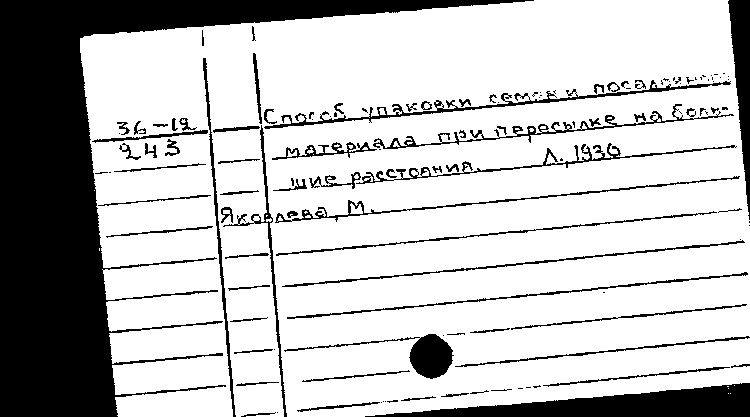 36-12
243
Способ упаковки семян и посадочного
материала при пересылке на боль-
шие расстояния. Л., 1936
Яковлева, М.